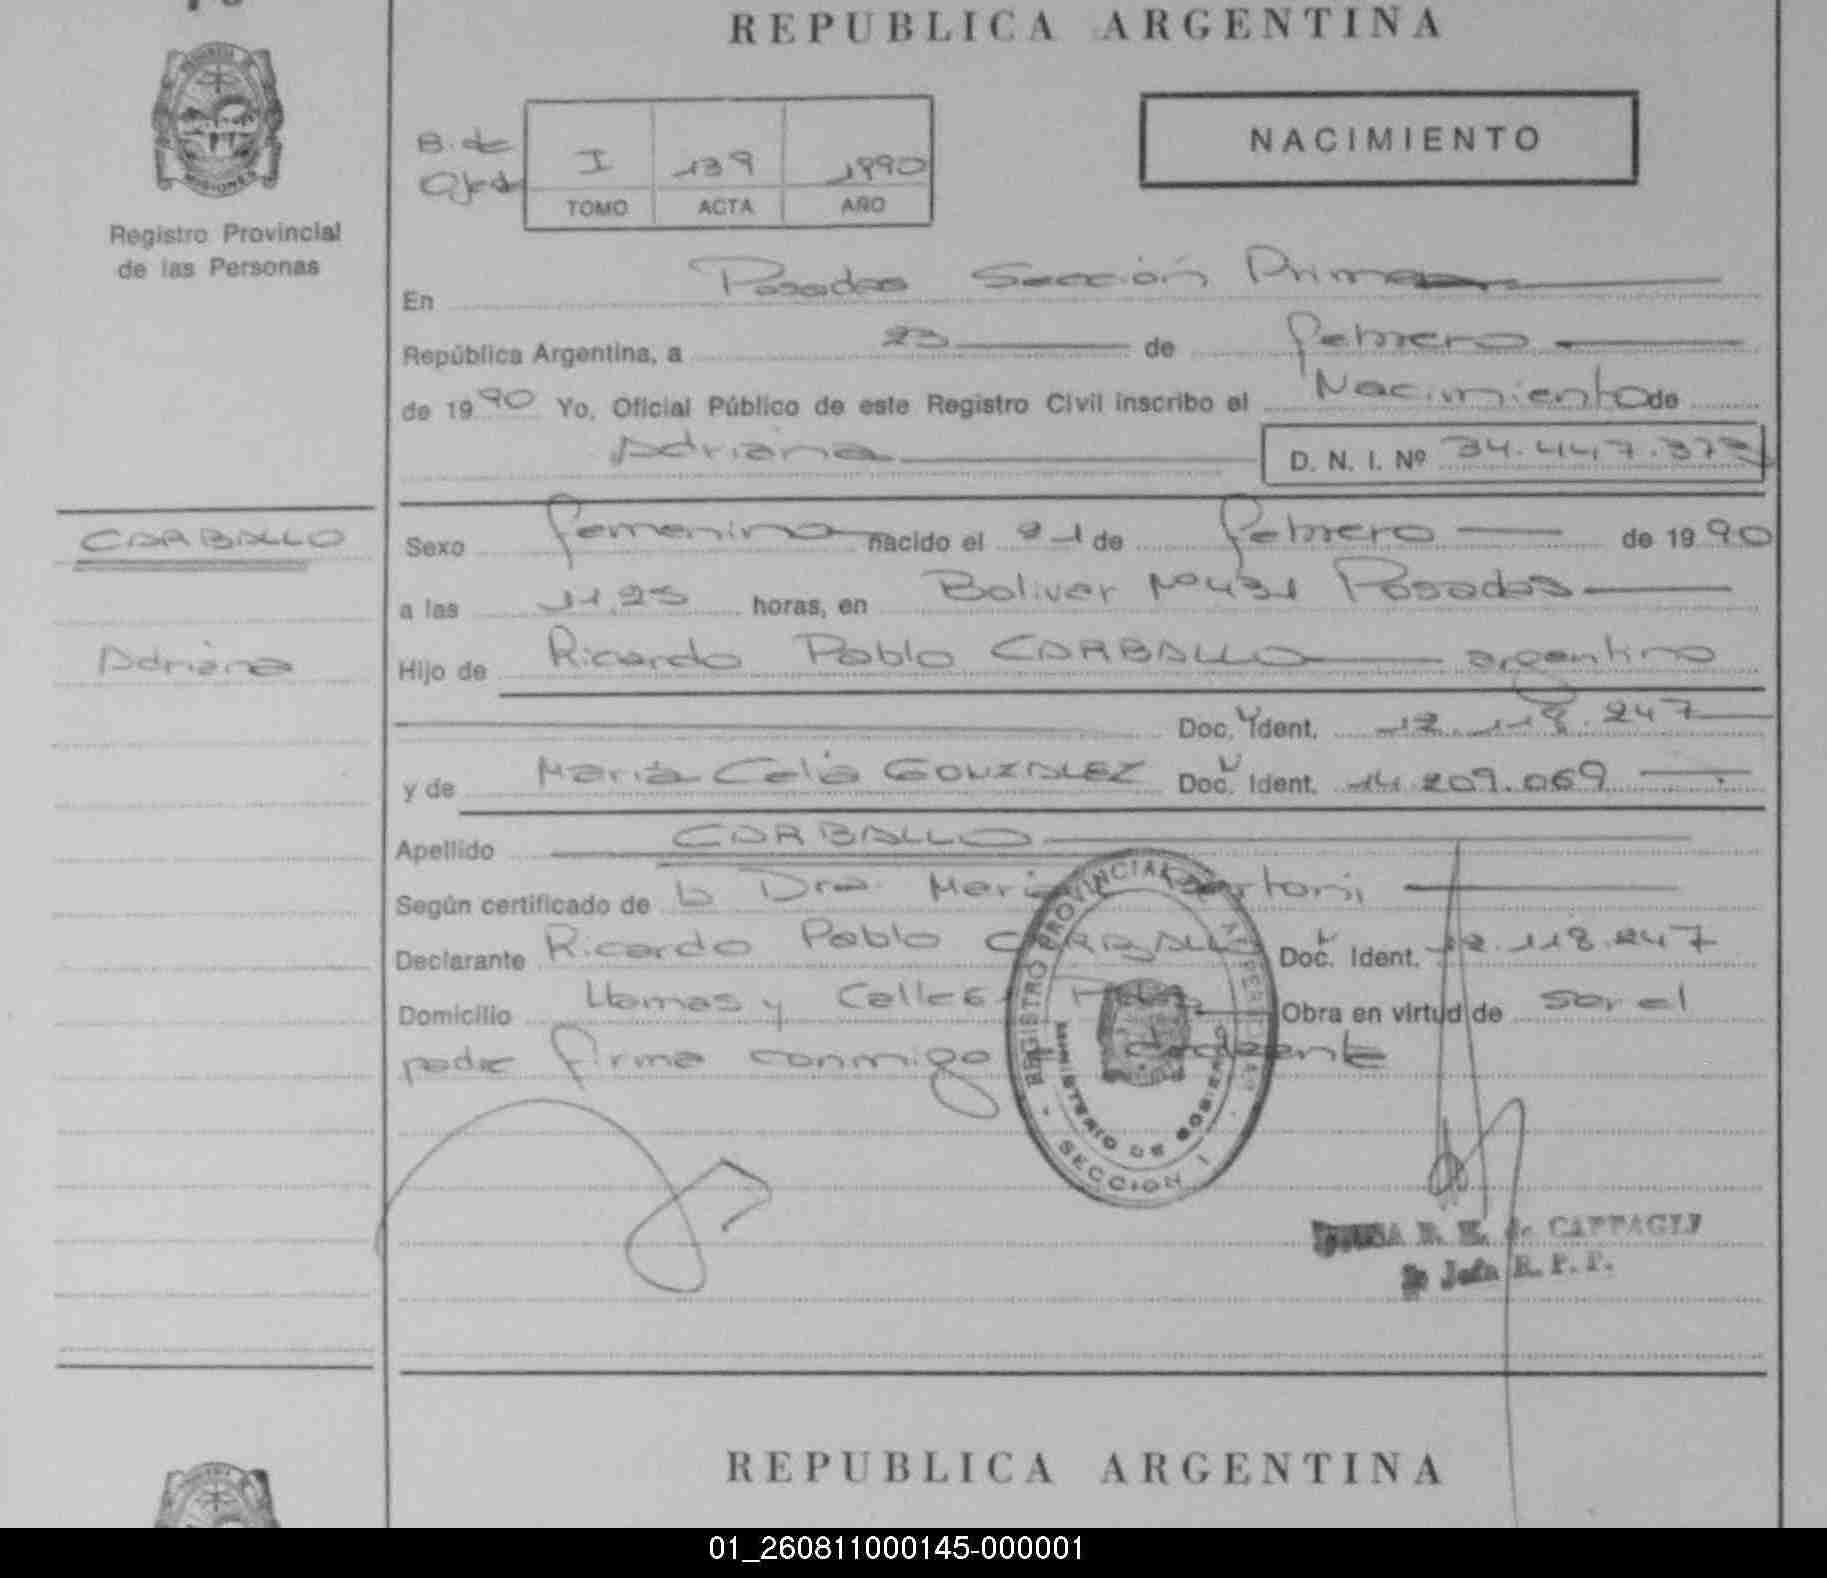 REPUBLICA ARGENTINA
MISIONES
Registro Provincial
de las Personas
B. de
I 139 1990
TOMO ACTA AÑO
NACIMIENTO
En Posadas Sección Primera
República Argentina, a 23 de febrero
de 1990 Yo, Oficial Público de este Registro Civil inscribo el Nacimiento de
Adriana D. N. I. Nº 34.447.373
CARBALLO
Adriana
Sexo femenino nacido el 21 de febrero de 1990
a las 11.25 horas, en Bolivar Nº 431 Posadas
Hijo de Ricardo Pablo CARBALLO argentino
Doc. Ident. 12.118.247
y de Maria Celia GONZALEZ Doc. Ident. 14.209.069
Apellido CARBALLO
Según certificado de la Dra. Maria
Declarante Ricardo Pablo CARBALLO Doc. Ident. 12.118.247
Domicilio Llamas y Calle 6 Obra en virtud de ser el
padre firma conmigo
REGISTRO PROVINCIAL
MINISTERIO DE GOBIERNO
SECCION I
Jefa R. P. P.
REPUBLICA ARGENTINA
01_260811000145-000001